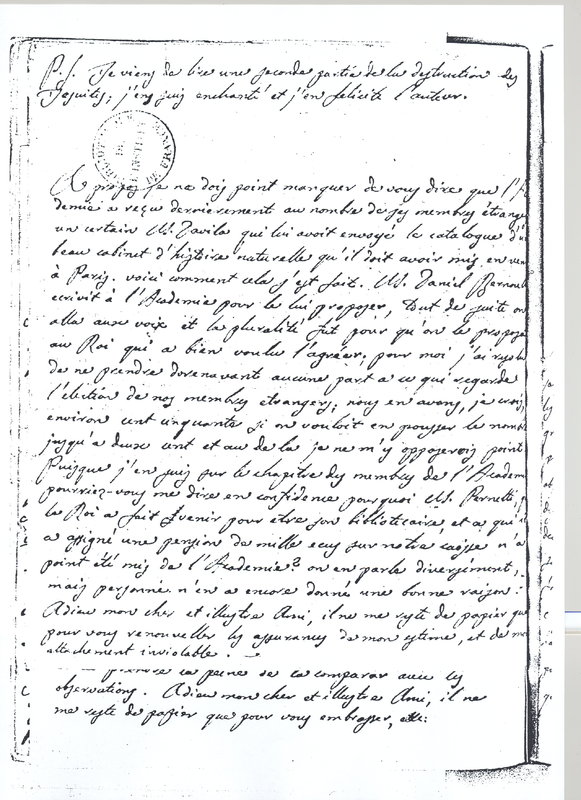 P.S. Je viens de lire une seconde partie de la destruction des
Jesuites; j'en suis enchanté et j'en felicite l'auteur.
A propos je ne dois point manquer de vous dire que l'A
demie a reçu dernierement au nombre de ses membres étrange
un certain M. Davila qui lui avoit envoyé le catalogue d'u
beau cabinet d'histoire naturelle qu'il doit avoir mis en ven
à Paris. voici comment cela s'est fait. M. Daniel Bernoul
ecrivit à l'Academie pour le lui proposer, tout de suite on
alla aux voix et la pluralité fut pour qu'on le propose
au Roi qui a bien voulu l'agréer; pour moi j'ai resolu
de ne prendre dorenavant aucune part a ce qui regarde
l'élection de nos membres etrangers; nous en avons, je crois,
environ cent cinquante si on vouloit en pousser le nomb
jusqu'a deux cent et au de la je ne m'y opposerois point
Puisque j'en suis sur le chapitre des membres de l'Academ
pourriez-vous me dire en confidence pourquoi M. Pernetti,
le Roi a fait venir pour être son bibliotecaire et a qui i
a assigné une pension de mille ecus sur notre caisse n'a
point été mis de l'Academie? on en parle diversement,
mais personne n'en a encore donné une bonne raison.
Adieu mon cher et illustre Ami, il ne me reste de papier que
pour vous renouveller les assurances de mon estime, et de mo
attachement inviolable.
la peine de la comparer avec les
observations. Adieu mon cher et illustre Ami, il ne
me reste de papier que pour vous embrasser, etc: